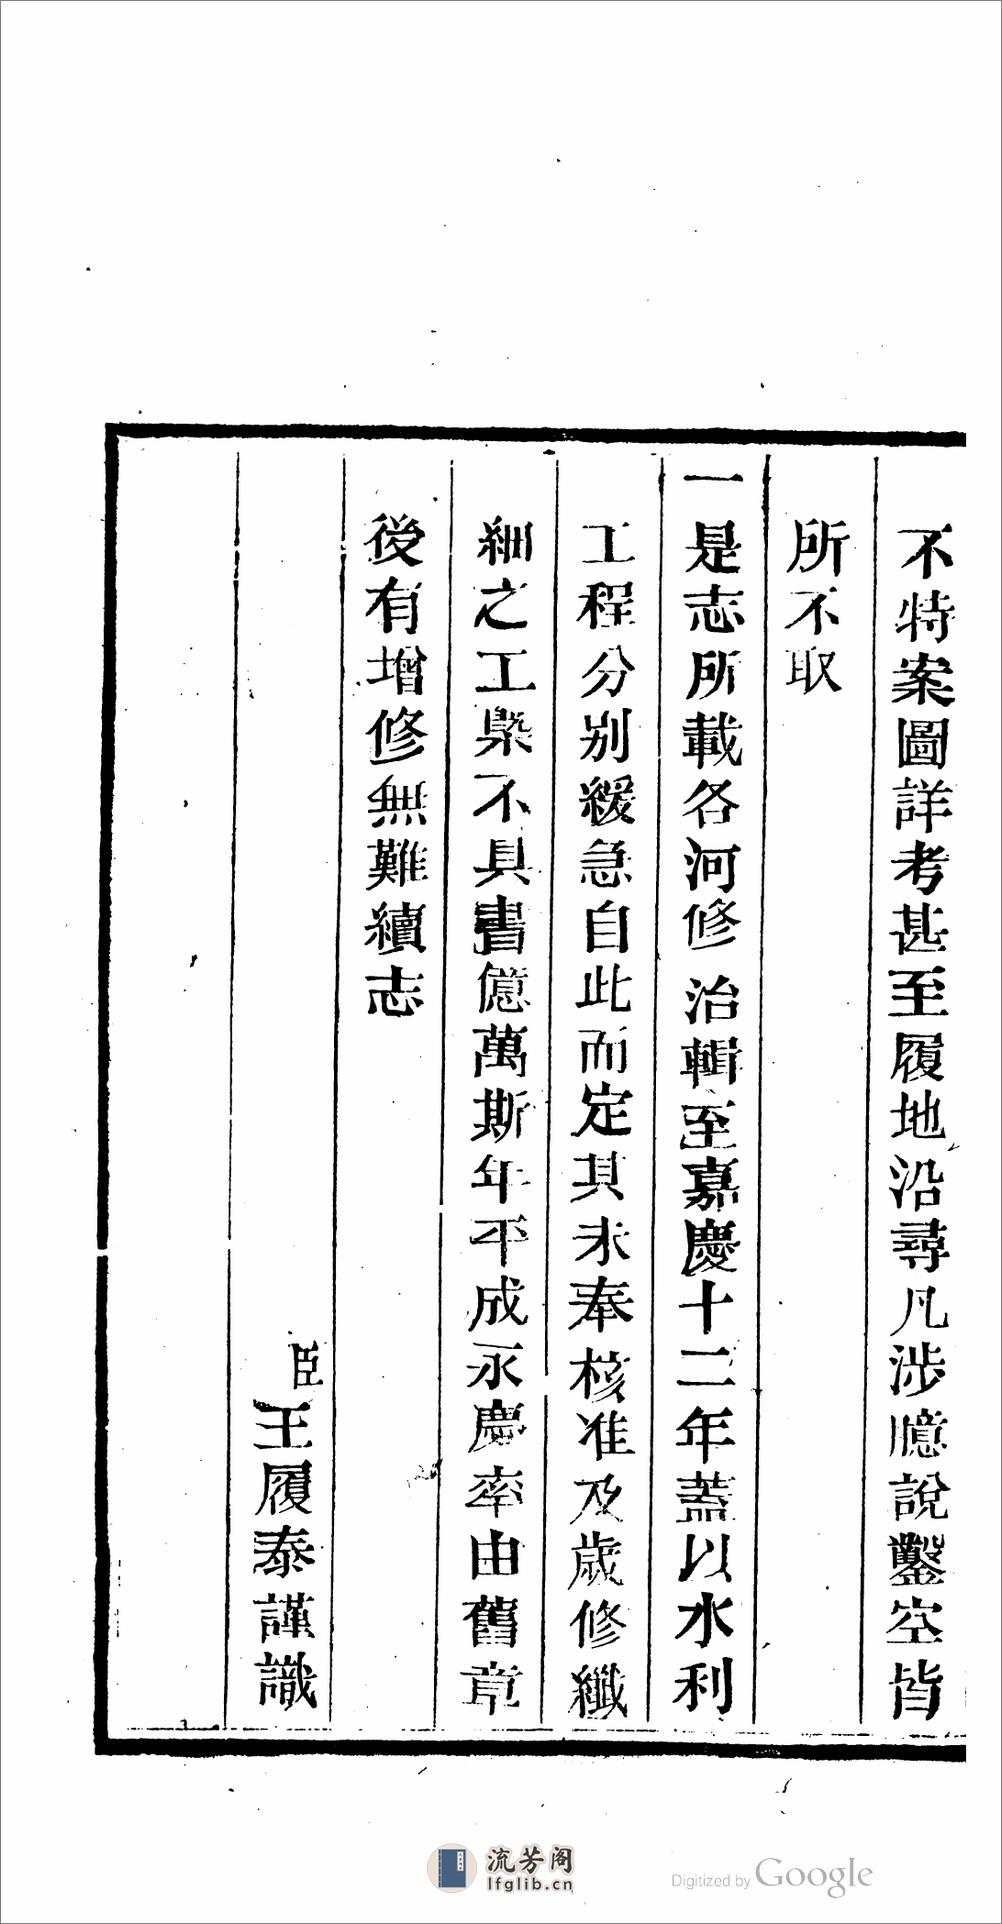 不特案圖詳考甚至履地沿尋凡涉臆說鑿空皆
所不取
一是志所載各河修治輯至嘉慶十二年蓋以水利
工程分別緩急自此而定其未奉核准及歲修纖
細之工槩不具書億萬斯年平成永慶率由舊章
後有增修無難續志
臣王履泰謹識
流芳阁
lfglib.cn
Digitized by Google